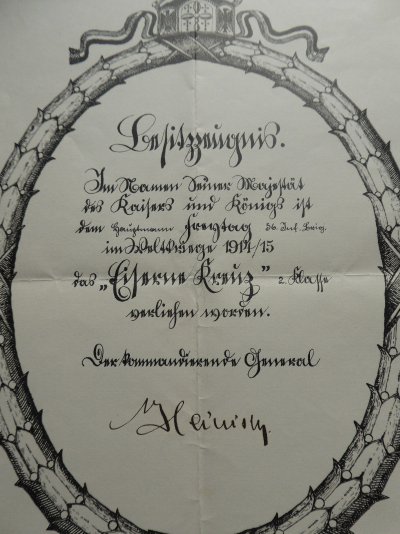 Besitzzeugnis.
Im Namen Seiner Majestät
des Kaisers und Königs ist
dem Hauptmann Freytag 36. Inf. Brig.
im Weltkriege 1914/15
das „Eiserne Kreuz" 2. Klasse
verliehen worden.
Der kommandierende General